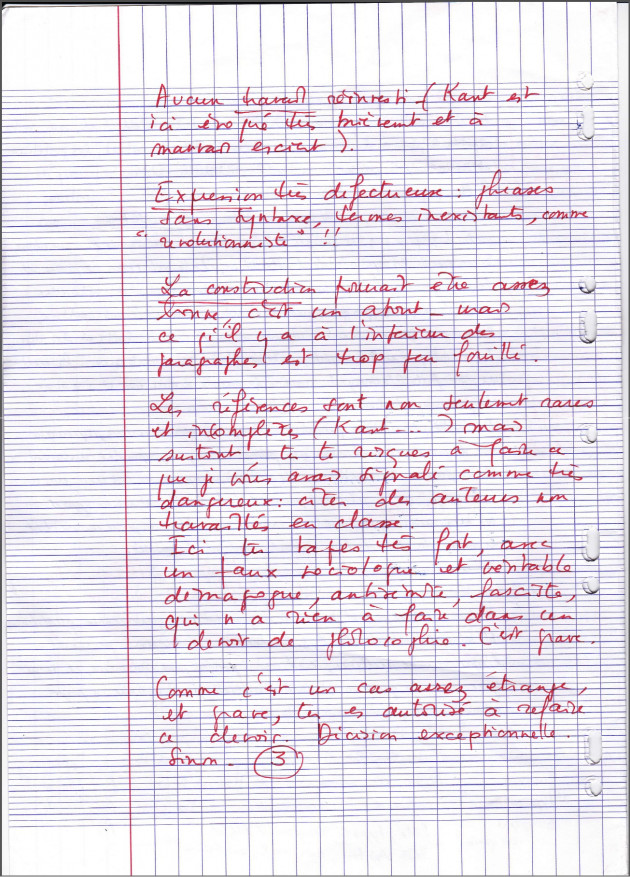 Aucun travail réinvesti (Kant est
ici évoqué très brièvement et à
mauvais escient).
Expression très défectueuse : phrases
sans syntaxe, termes inexistants, comme
"revolutionniste" !!
La construction pourrait être assez
bonne, c'est un atout - mais
ce qu'il y a à l'intérieur des
paragraphes est trop peu fouillé.
Les références sont non seulement rares
et incomplètes (Kant...) mais
surtout tu te risques à faire ce
que je vous avais signalé comme très
dangereux : citer des auteurs non
travaillés en classe.
Ici tu tapes très fort, avec
un faux sociologue et véritable
démagogue, antisémite, fasciste,
qui n'a rien à faire dans un
devoir de philosophie. C'est grave.
Comme c'est un cas assez étrange,
et grave, tu es autorisé à refaire
ce devoir. Décision exceptionnelle.
Sinon - 3